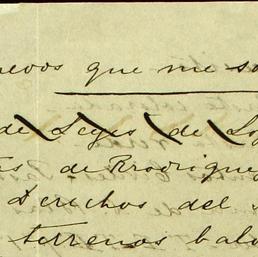 nuevos que me so
de Leyes de Lo
as de Rrodrigue
Derechos del
terrenos bald